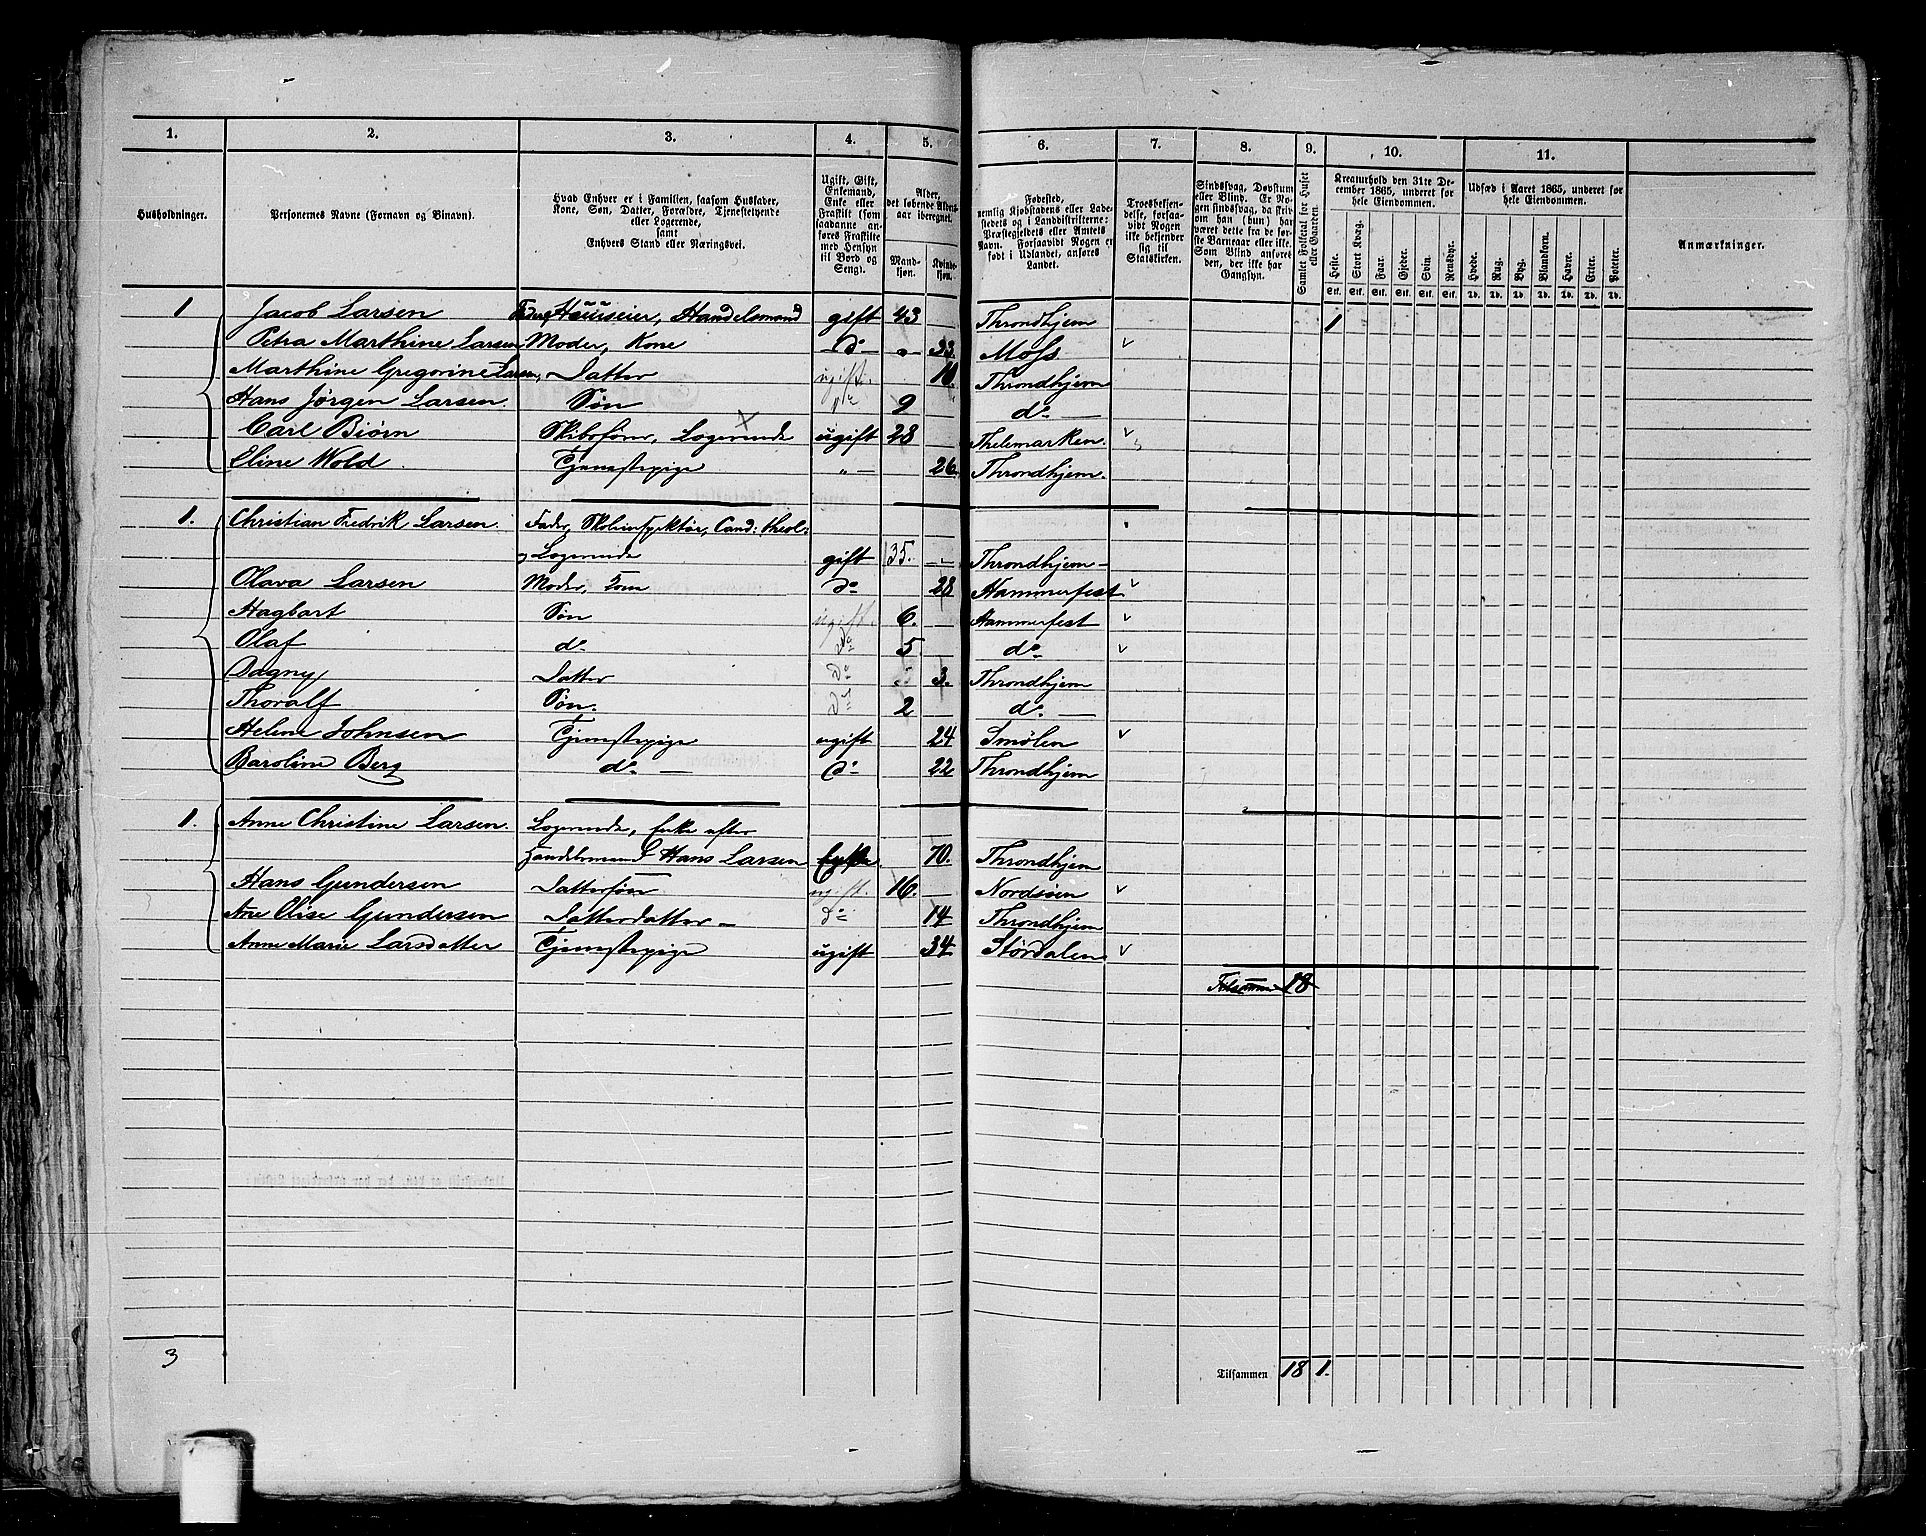 1. 2. 3. 4. 5. 6. 7. 8. 9. 10. 11.
Husholdninger.
Personernes Navne (Fornavn og Binavn).
Hvad Enhver er i Familien, saasom Husfader,
Kone, Søn, Datter, Forældre, Tjenestetyende
eller Logerende,
samt
Enhvers Stand eller Næringsvei.
Ugift, Gift,
Enkemand,
Enke eller
Fraskilt (som
saadanne an-
føres Fraskilte
med Hensyn
til Bord og
Seng).
Alder,
det løbende Alders-
aar iberegnet.
Mand-
kjøn.
Kvinde-
kjøn.
Fødested,
nemlig Kjøbstadens eller Lade-
stedets og i Landdistrikterne:
Præstegjeldets eller Amtets
Navn. Forsaavidt Nogen er
født i Udlandet, anføres
Landet.
Troesbekjen-
delse, forsaa-
vidt Nogen
ikke bekjender
sig til
Statskirken.
Sindssvag, Døvstum
eller Blind. Er No-
gen sindssvag, da skri-
ves om han (hun) har
været dette fra de før-
ste Barneaar eller ikke.
Som Blind anføres
den, der ikke har
Gangsyn.
Samlet Folketal for Huset
eller Gaarden.
Kreaturhold den 31te De-
cember 1865, underet for
hele Eiendommen.
Heste. Stort Kvæg. Faar. Gjeder. Svin. Rensdyr.
Stk. Stk. Stk. Stk. Stk. Stk.
Udsæd i Aaret 1865, underet for
hele Eiendommen.
Hvede. Rug. Byg. Blandkorn. Havre. Erter. Poteter.
Td. Td. Td. Td. Td. Td. Td.
Anmærkninger.
1 Jacob Larsen Fader, Huuseier, Handelsmand gift 43 Throndhjem 1
Petra Marthine Larsen Moder, Kone do 33. Moss
Marthine Gregorine Larsen, Datter ugift. 10. Throndhjem
Hans Jørgen Larsen. Søn 9 do
Carl Biørn Logerende ugift 28 Thelemarken.
Eline Wold. Tjenestepige " 26. Throndhjem.
1. Christian Fredrik Larsen. Fader, Skoleinspektør, Cand: theol:
Logerende gift 35. Throndhjem
Olava Larsen Moder, Kone do 28 Hammerfest
Hagbart Søn ugift. 6. Hammerfest
Olaf do do 5 do
Dagny Datter do 3. Throndhjem
Thoralf Søn. do 2 do.
Helene Johnsen Tjenestepige ugift 24 Smølen
Baroline Berg do. do 22 Throndhjem
1. Anne Christine Larsen. Logerende, Enke efter
Handelsmand Hans Larsen Enke. 70. Throndhjem
Hans Gundersen Dattersøn ugift. 16. Nordsøen
Ane Elise Gundersen Datterdatter do 14 Throndhjem
Anne Marie Larsdatter Tjenestepige ugift 34 Størdalen
Tilsammen 18
3
Tilsammen 18 1.